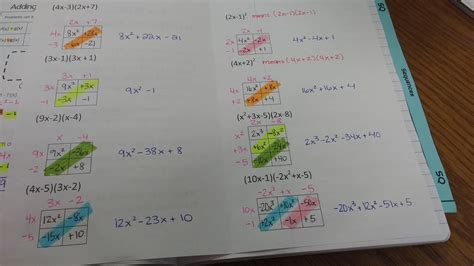 Adding
(4x-3)(2x+7)
2x +7
4x 8x² +28x
-3 -6x -21
8x² + 22x - 21
(3x-1)(3x + 1)
3x +1
9x² +3x
-3x -1
9x² - 1
(9x-2)(x-4)
x -4
9x²
+8
9x² - 38x + 8
(4x-5)(3x-2)
3x -2
4x 12x² -8x
-5 -15x +10
12x² - 23x + 10
(2x-1)² means (2x-1)(2x-1)
2x -1
4x² -2x
-1 +1
4x² - 4x + 1
(4x+2)² means (4x+2)(4x+2)
16x² +8x
+2 +8x +4
16x² + 16x + 4
(x²+3x-5)(2x-8)
2x -8
x² 2x³ -8x²
+3x +6x² -24x
-5 +40
2x³ - 2x² - 34x + 40
(10x-1)(-2x²+x-5)
-2x² +x -5
10x -20x³ +10x² -50x
-1 -1x +5
-20x³ + 12x² - 51x + 5
SQ
Sequences
SQ